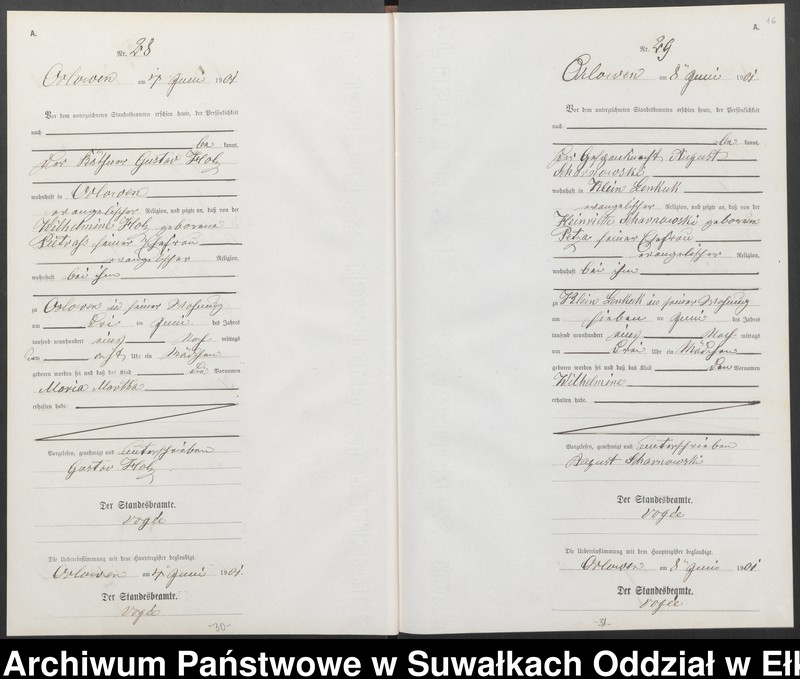 A.
Nr. 28
Orlowen am 4ten Juni 1901
Vor dem unterzeichneten Standesbeamten erschien heute, der Persönlichkeit
nach
be kannt,
der Käthner Gustav Holz
wohnhaft in Orlowen
evangelischer Religion, und zeigte an, daß von der
Wilhelmine Holz geborene
Pietraß seiner Ehefrau
evangelischer Religion,
wohnhaft bei ihm
zu Orlowen in seiner Wohnung
am drei ten Juni des Jahres
tausend neunhundert eins Nach mittags
um acht Uhr ein Mädchen
geboren worden sei und daß das Kind die Vornamen
Maria Martha
erhalten habe.
Vorgelesen, genehmigt und unterschrieben
Gustav Holz.
Der Standesbeamte.
Vogée
Die Uebereinstimmung mit dem Hauptregister beglaubigt.
Orlowen am 4ten Juni 1901.
Der Standesbeamte.
Vogée
-30-
16
A.
Nr. 29
Orlowen am 8ten Juni 1901
Vor dem unterzeichneten Standesbeamten erschien heute, der Persönlichkeit
nach
be kannt,
der August
Scharnowski
wohnhaft in Klein Lenkuk
evangelischer Religion, und zeigte an, daß von der
Heinriette Scharnowski geborene
Petza seiner Ehefrau
evangelischer Religion,
wohnhaft bei ihm
zu Klein Lenkuk in seiner Wohnung
am sieben ten Juni des Jahres
tausend neunhundert eins Nach mittags
um drei Uhr ein Mädchen
geboren worden sei und daß das Kind den Vornamen
Wilhelmine
erhalten habe.
Vorgelesen, genehmigt und unterschrieben
August Scharnowski
Der Standesbeamte.
Vogée
Die Uebereinstimmung mit dem Hauptregister beglaubigt.
Orlowen am 8ten Juni 1901
Der Standesbeamte.
Vogée
-31-
Archiwum Państwowe w Suwałkach Oddział w Ełk